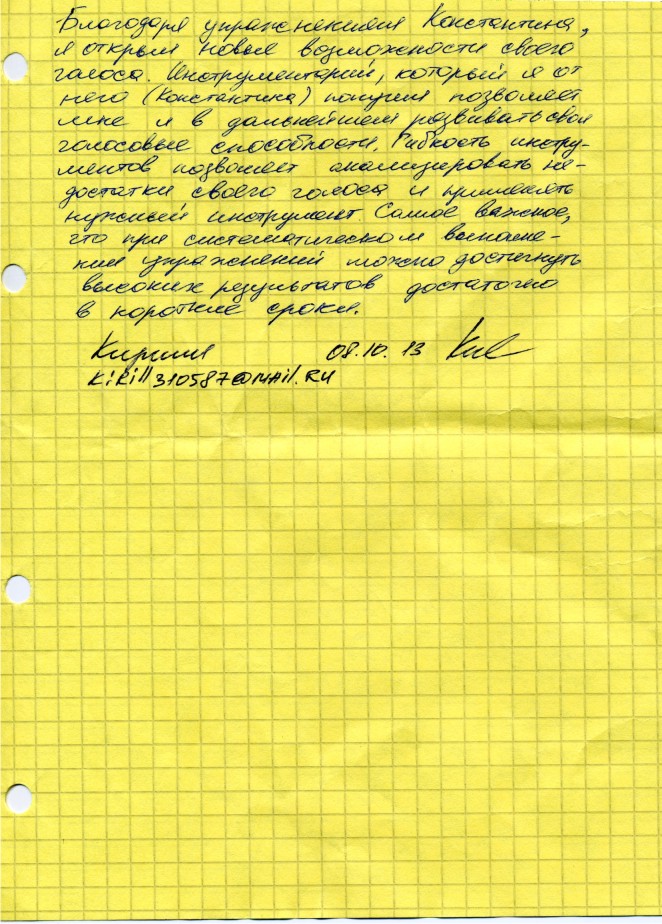 Благодаря упражнениям Константина,
я открыл новые возможности своего
голоса. Инструментарий, который я от
него (Константина) получил позволяет
мне и в дальнейшем развивать свои
голосовые способности. Гибкость инстру-
ментов позволяет анализировать не-
достатки своего голоса и применять
нужный инструмент. Самое важное,
что при систематическом выполне-
нии упражнений можно достигнуть
высоких результатов достаточно
в короткие сроки.
Кирилл 08.10.13
kiRill310587@mail.RU